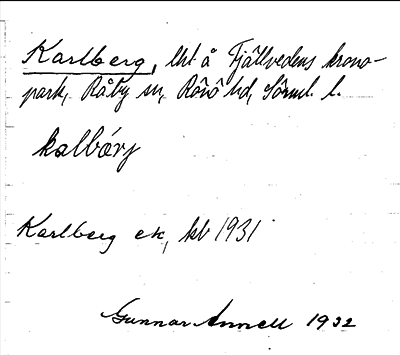 Karlberg, lht å Fjällvedens krono-
park, Råby sn, Rönö hd, Sörml. l.
kalbärj
Karlberg ek, kb 1931
Gunnar Annell 1932